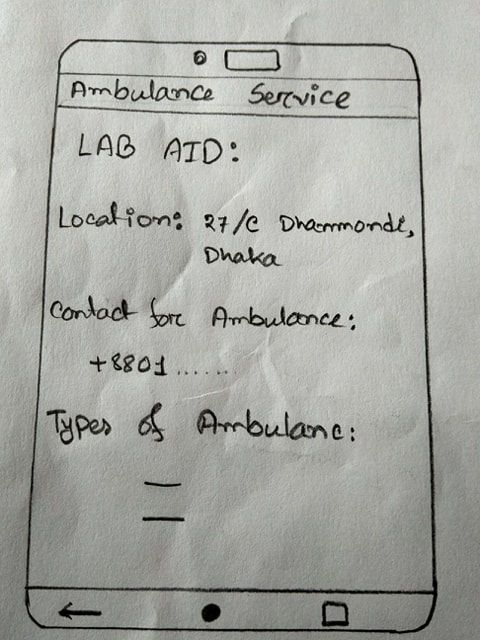 Ambulance Service
LAB AID:
Location: 27/C Dhanmondi,
Dhaka
Contact for Ambulance:
+8801.......
Types of Ambulanc: